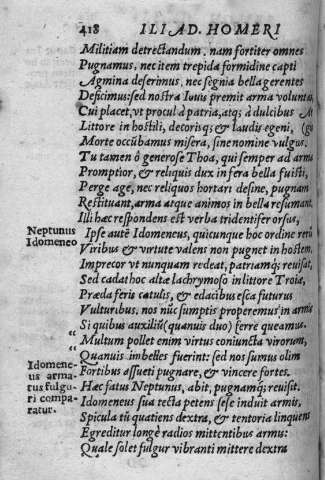 418 ILIAD. HOMERI
Militiam detrectandum. nam fortiter omnes
Pugnamus, nec item trepida formidine capti
Agmina deserimus, nec segnia bella gerentes
Deficimus: sed nostra Iouis premit arma voluntas
Cui placet, vt procul à patria, atq; à dulcibus
Littore in hostili, detorisq; & laudis egeni,
Morte occûbamus misera, sine nomine vulgus.
Tu tamen ô generose Thoa, qui semper ad arma
Promptior, & reliquis dux in fera bella fuisti,
Perge age, nec reliquos hortari desine, pugnam
Restituant, arma atque animos in bella resumant.
Illi hæc respondens est verba tridentifer orsus,
Neptunus
Idomeneo
Ipse autê Idomeneus, quicunque hoc ordine rerû
Viribus & virtute valens non pugnet in hostem,
Imprecor vt nunquam redeat, patriamq; reuisat,
Sed cadat hoc altæ lachrymoso in littore Troiæ,
Præda feris catulis, & edacibus esca futurus
Vulturibus. nos nûc sumptis properemus in armis
Si quibus auxiliû (quanuis duo) ferre queamus.
“ Multum pollet enim virtus coniuncta virorum,
“ Quamuis imbelles fuerint: sed nos sumus olim
Idomene-
us arma-
tus fulgu-
ri compa-
ratur.
Fortibus assueti pugnare, & vincere fortes.
Hæc fatus Neptunus, abit, pugnamq; reuisit.
Idomeneus sua tecta petens sese induit armis,
Spicula tû quatiens dextra, & tentoria linquens
Egreditur longè radios mittentibus armis:
Quale solet fulgur vibranti mittere dextra